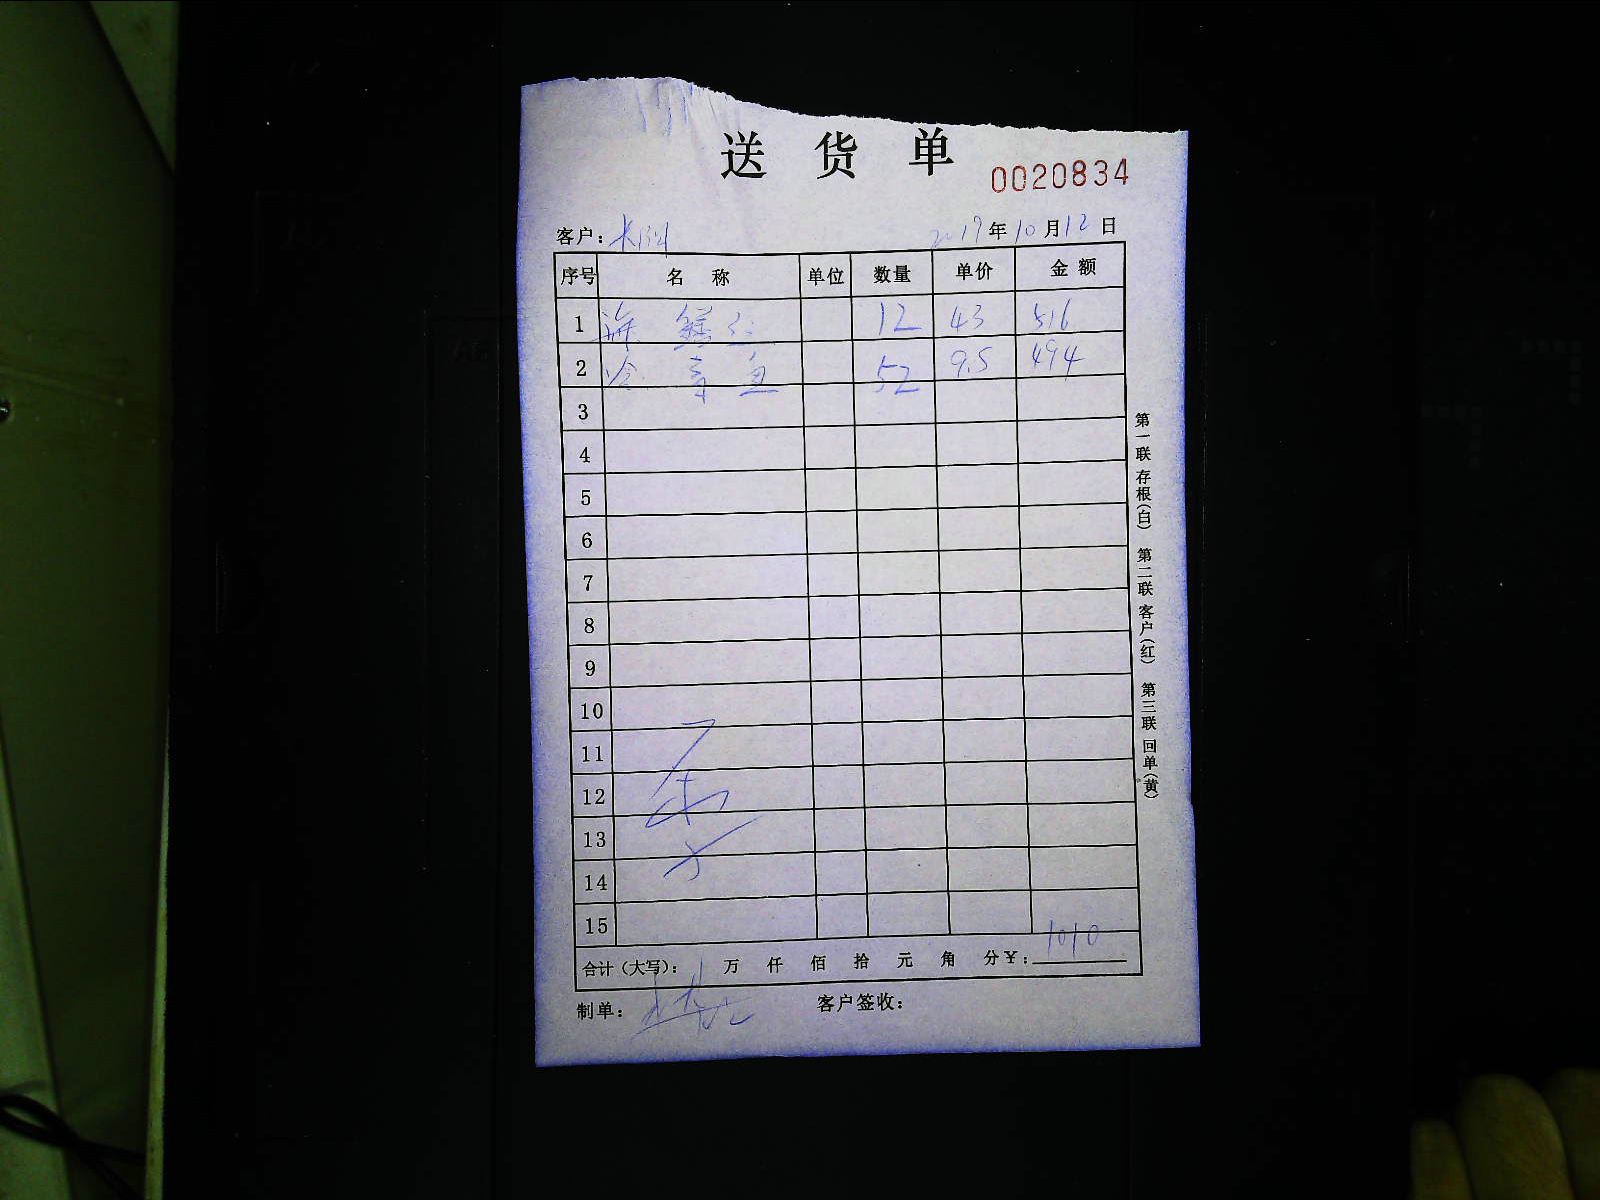 送 货 单
0020834
客户： 2019年10月12日
序号 名 称 单位 数量 单价 金 额
1 海 鲜 12 43 516
2 冷 章 鱼 52 9.5 494
3
4
5
6
7
8
9
10
11
12
13
14
15
合计（大写）： 万 仟 佰 拾 元 角 分￥：1010
制单： 客户签收：
第一联 存根（白） 第二联 客户（红） 第三联 回单（黄）